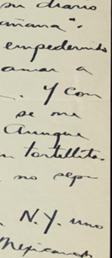 su diario
añana".
empedernido
amar a
. Y con
se me
Aunque
n tortillita.
no sepa
N.Y. uno
Mexicano